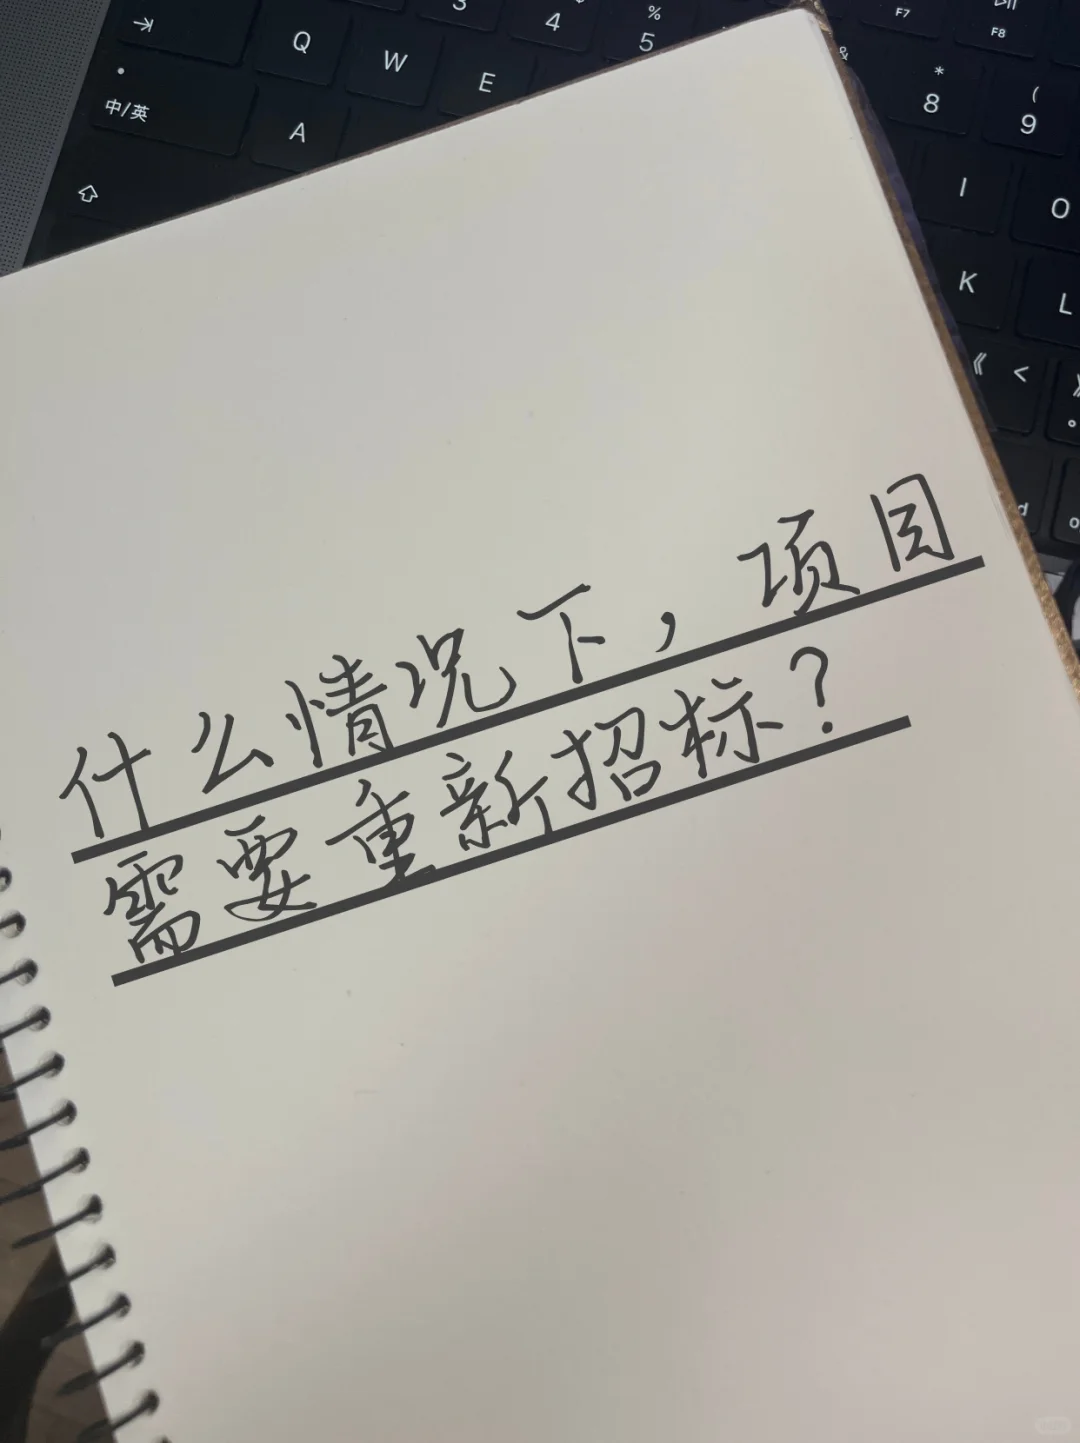 Q W E 3 4 % 5
F7 F8
中/英 A
& * 8 ( 9
I O
K L
《 <
什么情况下，项目
需要重新招标？